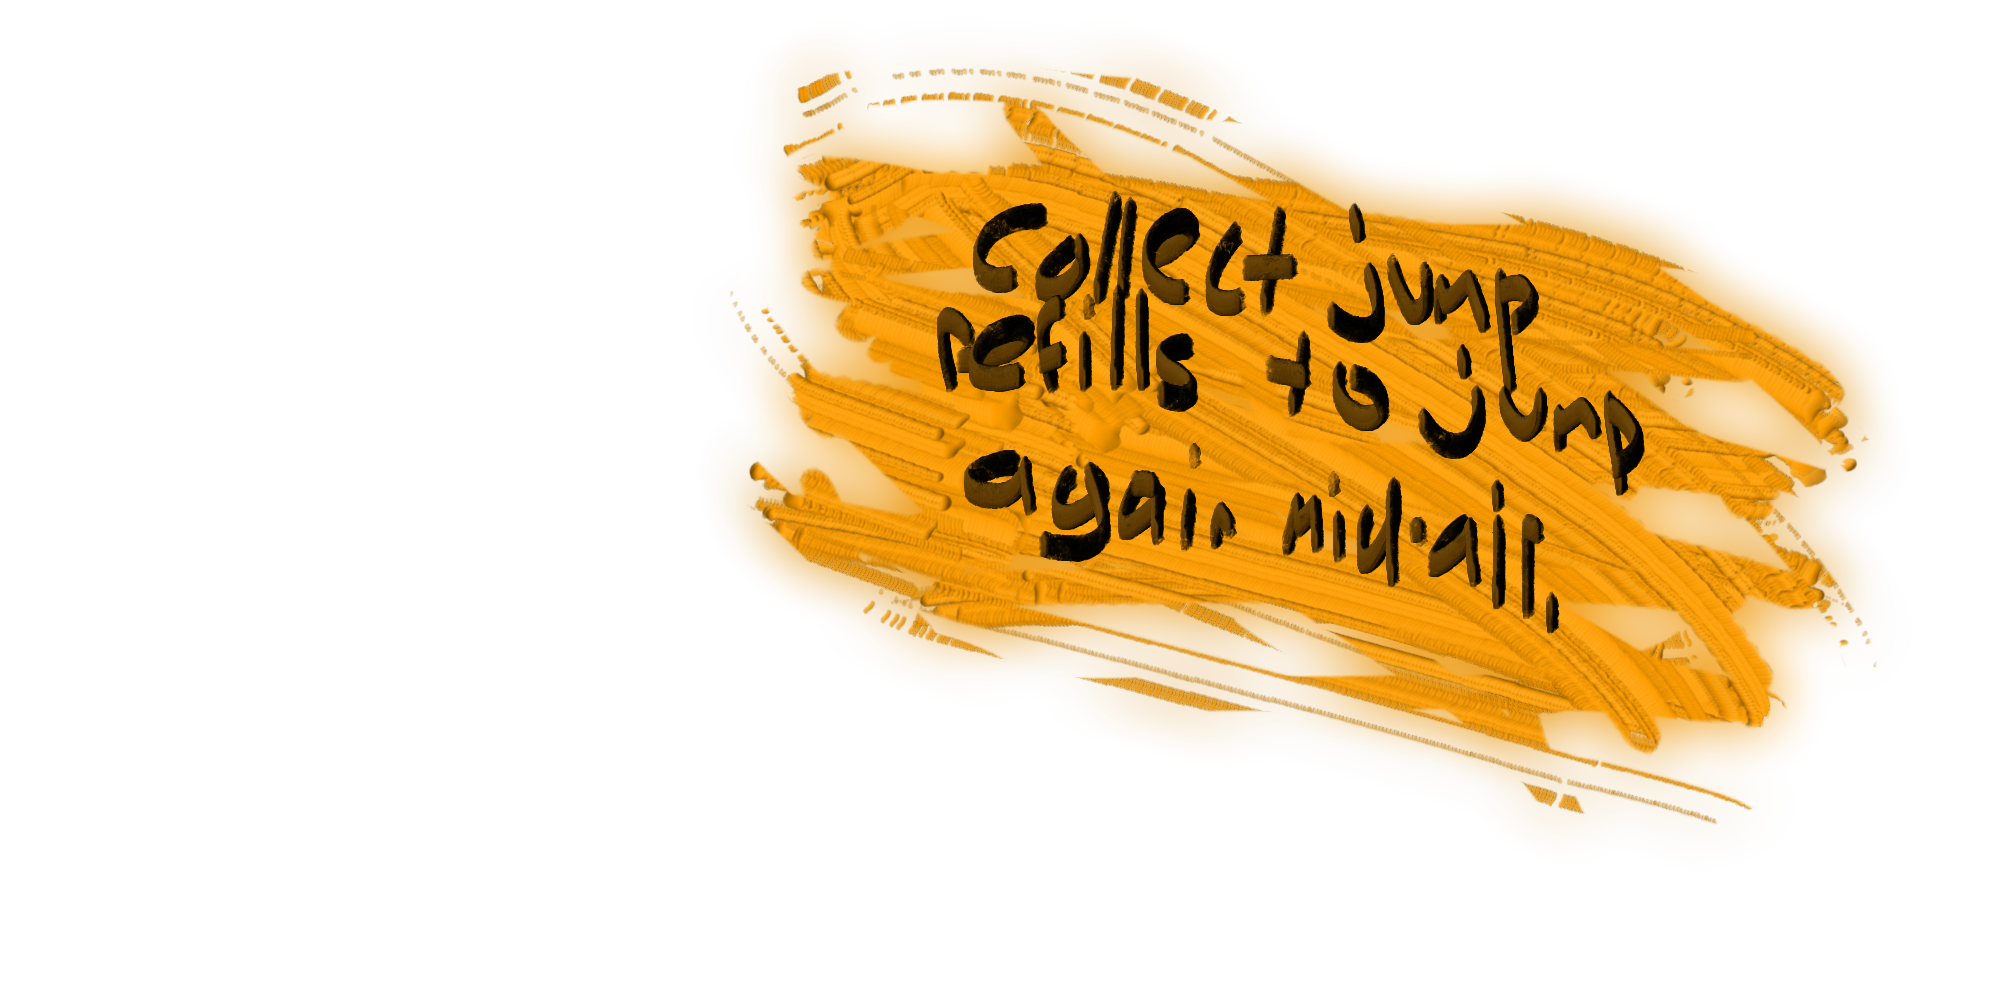 collect jump
refills to jump
again mid-air.